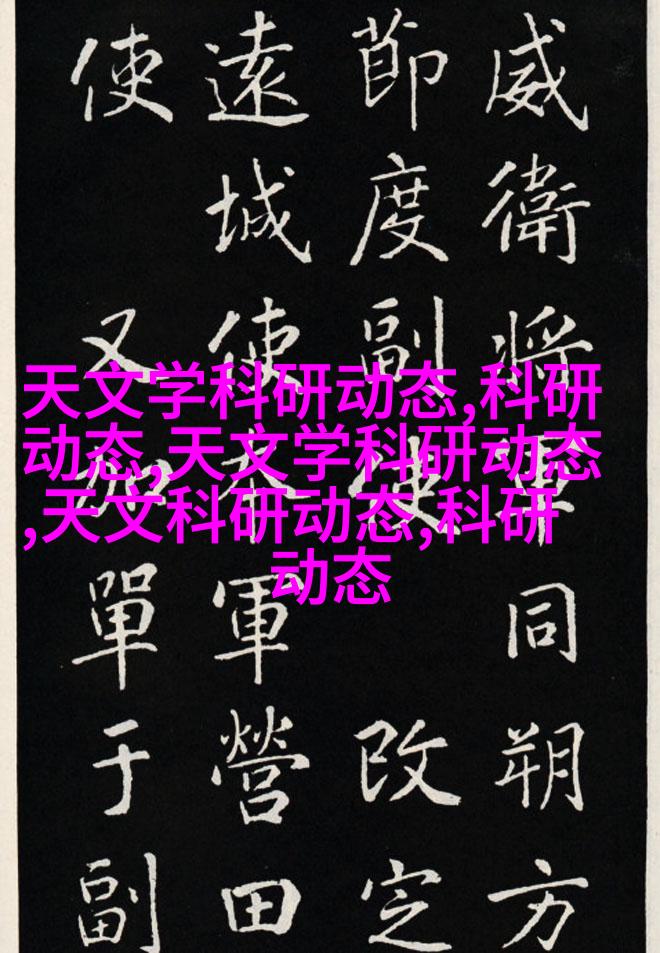 威衛将軍同朔方
節度副使 改定
遠城使本軍營田
使 又加單于副
天文学科研动态,科研
动态,天文学科研动态
,天文科研动态,科研
动态